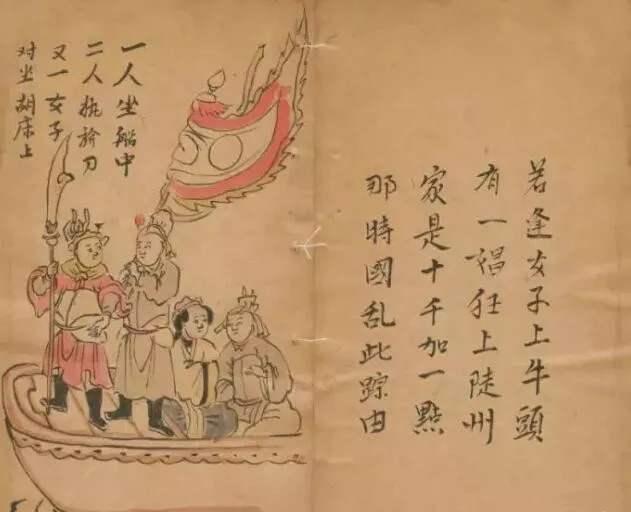 若逢女子上牛頭
有一狂上陡州
家是十千加一點
那時國乱此踪由
一人坐船中
二人执於刀
又一女子
对坐胡床上